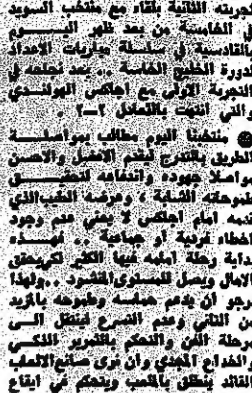 تجربته الثانية بلقاء مع منتخب السويد
في الخامسة من بعد ظهر اليوم
بالقادسية في سلسلة مباريات الاعداد
لدورة الخليج الخامسة .. بعد نجاحه في
التجربة الاولى مع اجاكس الهولندي
والتي انتهت بالتعادل
منتخبنا اليوم مطالب بمواصلة
الطريق بالتدرج لتقديم الافضل والاحسن
مواصلا جهوده واندفاعه لتحقيق
طموحاته الشابة ، وعرضه الطيب الذي
قدمه امام اجاكس لا يعني عدم وجود
اخطاء فردية او جماعية .. فهذه
بداية رحلة امامه فيها الكثير لكي يحقق
الآمال ويصل للمستوى المنشود .. ولهذا
نرجو أن يدعم حماسه وطموحه بالمزيد
من التاني وعدم التسرع لينتقل الى
مرحلة الفن والتحكم بالتمرير الذكي
والخداع المجدي وان نرى صانع الالعاب
القائد ينطلق بالملعب ويتحكم في ايقاع